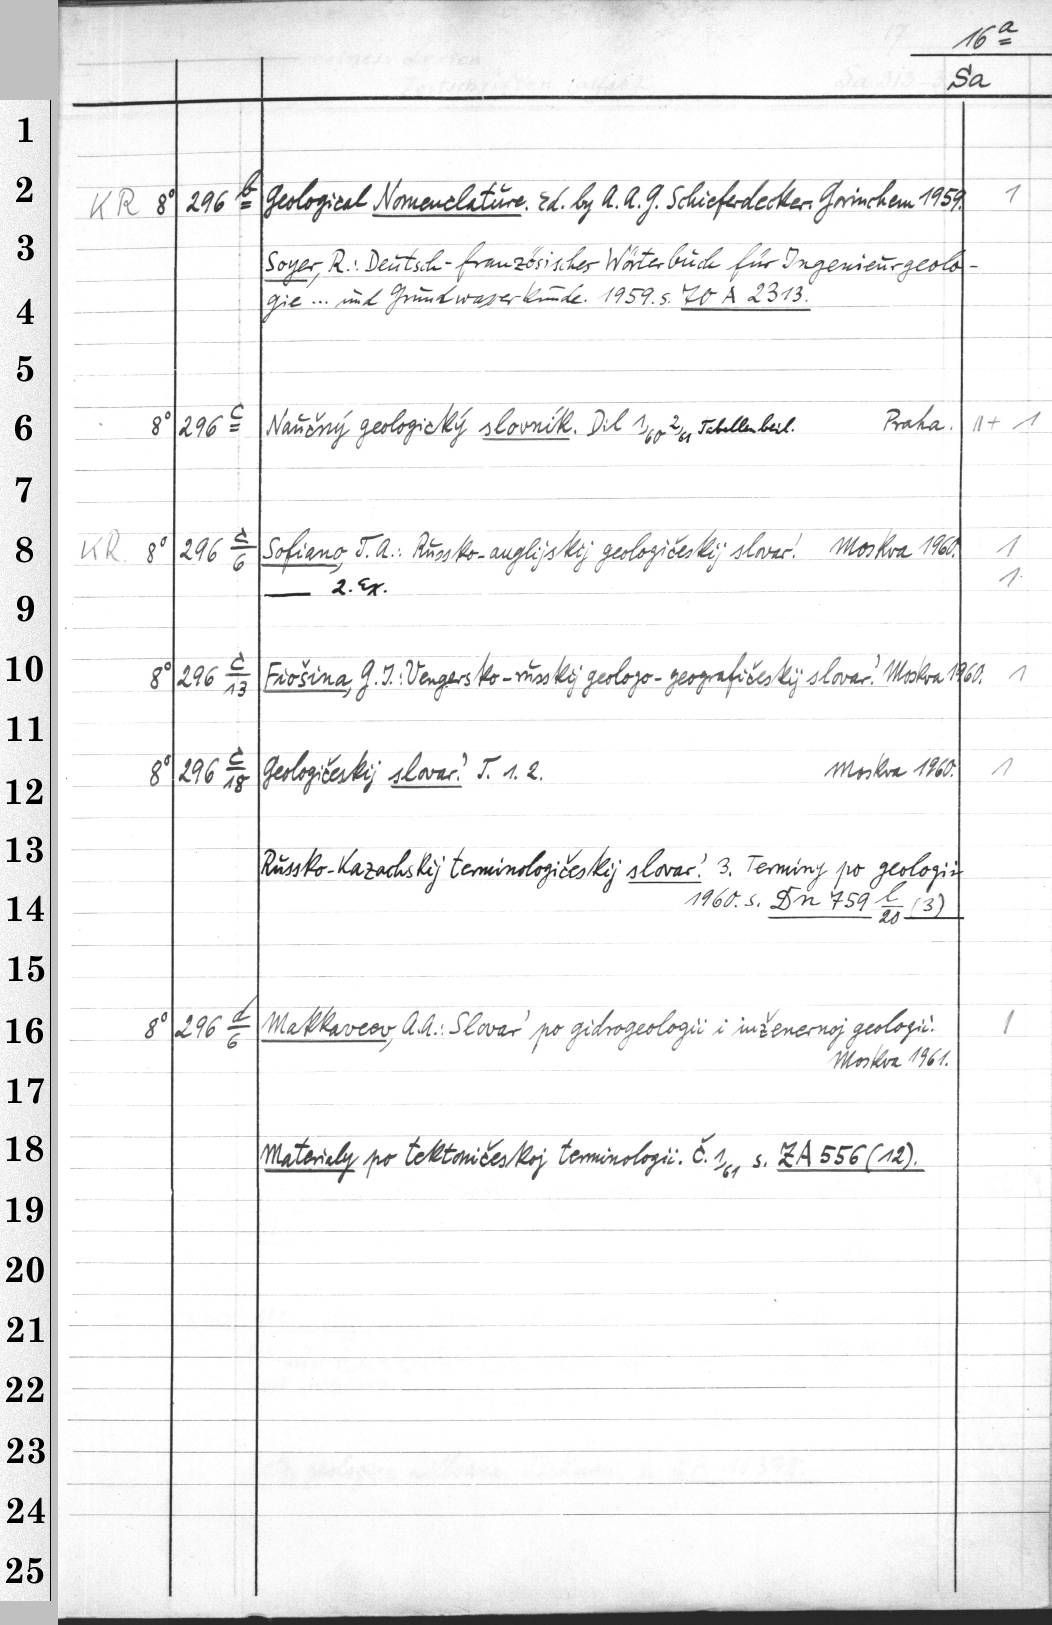 16 a
Sa
1
2
KR 8° 296 b Geological Nomenclature. Ed. by A. A. G. Schieferdecker. Gorinchem 1959. 1
3
Soyer, R.: Deutsch-französisches Wörterbuch für Ingenieurgeolo-
gie ... und Grundwasserkunde. 1959. s. 70 A 2313.
4
5
6
8° 296 c Naučný geologický slovník. Díl 1/60 2/61 Tabellenbeil. Praha. 1+ 1
7
8
KR 8° 296 c/6 Sofiano, T. A.: Russko-anglijskij geologičeskij slovar'. Moskva 1960. 1
— 2. Ex. 1
9
10
8° 296 c/13 Fiošina, G. I.: Vengersko-russkij geologo-geografičeskij slovar'. Moskva 1960. 1
11
8° 296 c/18 Geologičeskij slovar'. T. 1. 2. Moskva 1960. 1
12
13
Russko-Kazachskij terminologičeskij slovar'. 3. Terminy po geologii
1960. s. Dn 759 l/20 (3)
14
15
16
8° 296 d/6 Makkaveev, A. A.: Slovar' po gidrogeologii i inženernoj geologii. 1
Moskva 1961.
17
18
Materialy po tektoničeskoj terminologii. Č. 1/61 s. ZA 556 (12).
19
20
21
22
23
24
25